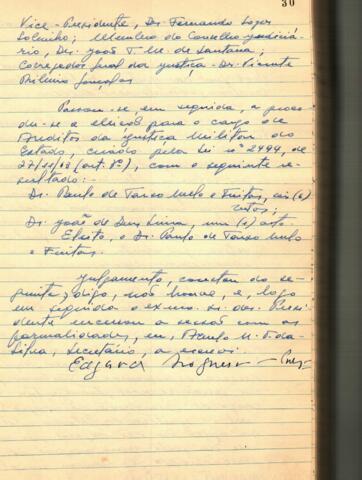 30
Vice-Presidente, Dr. Fernando Lopes
Sobrinho; Membro do Conselho Judiciá-
rio, Dr. João T. M. de Santana;
Corregedor Geral da Justiça - Dr. Vicente
Ribeiro Gonçalves
Passou-se, em seguida, a proce-
deu-se a eleição para o cargo de
Auditor da Justiça Militar do
Estado, criado pela Lei nº 2499, de
(art. 8º), com o seguinte re-
sultado:-
Dr. Paulo de Tarso Melo e Freitas,
votos;
Dr. João de Deus Lima, um (1) voto.
Eleito, o Dr. Paulo de Tarso Melo
e Freitas.
Julgamento, constou do se-
guinte, digo, não houve, e, logo
em seguida o exmo. sr. des. Presi-
dente encerrou a sessão com as
formalidades, eu,
Silva, secretário, a escrevi.
Edgard Nogueira -